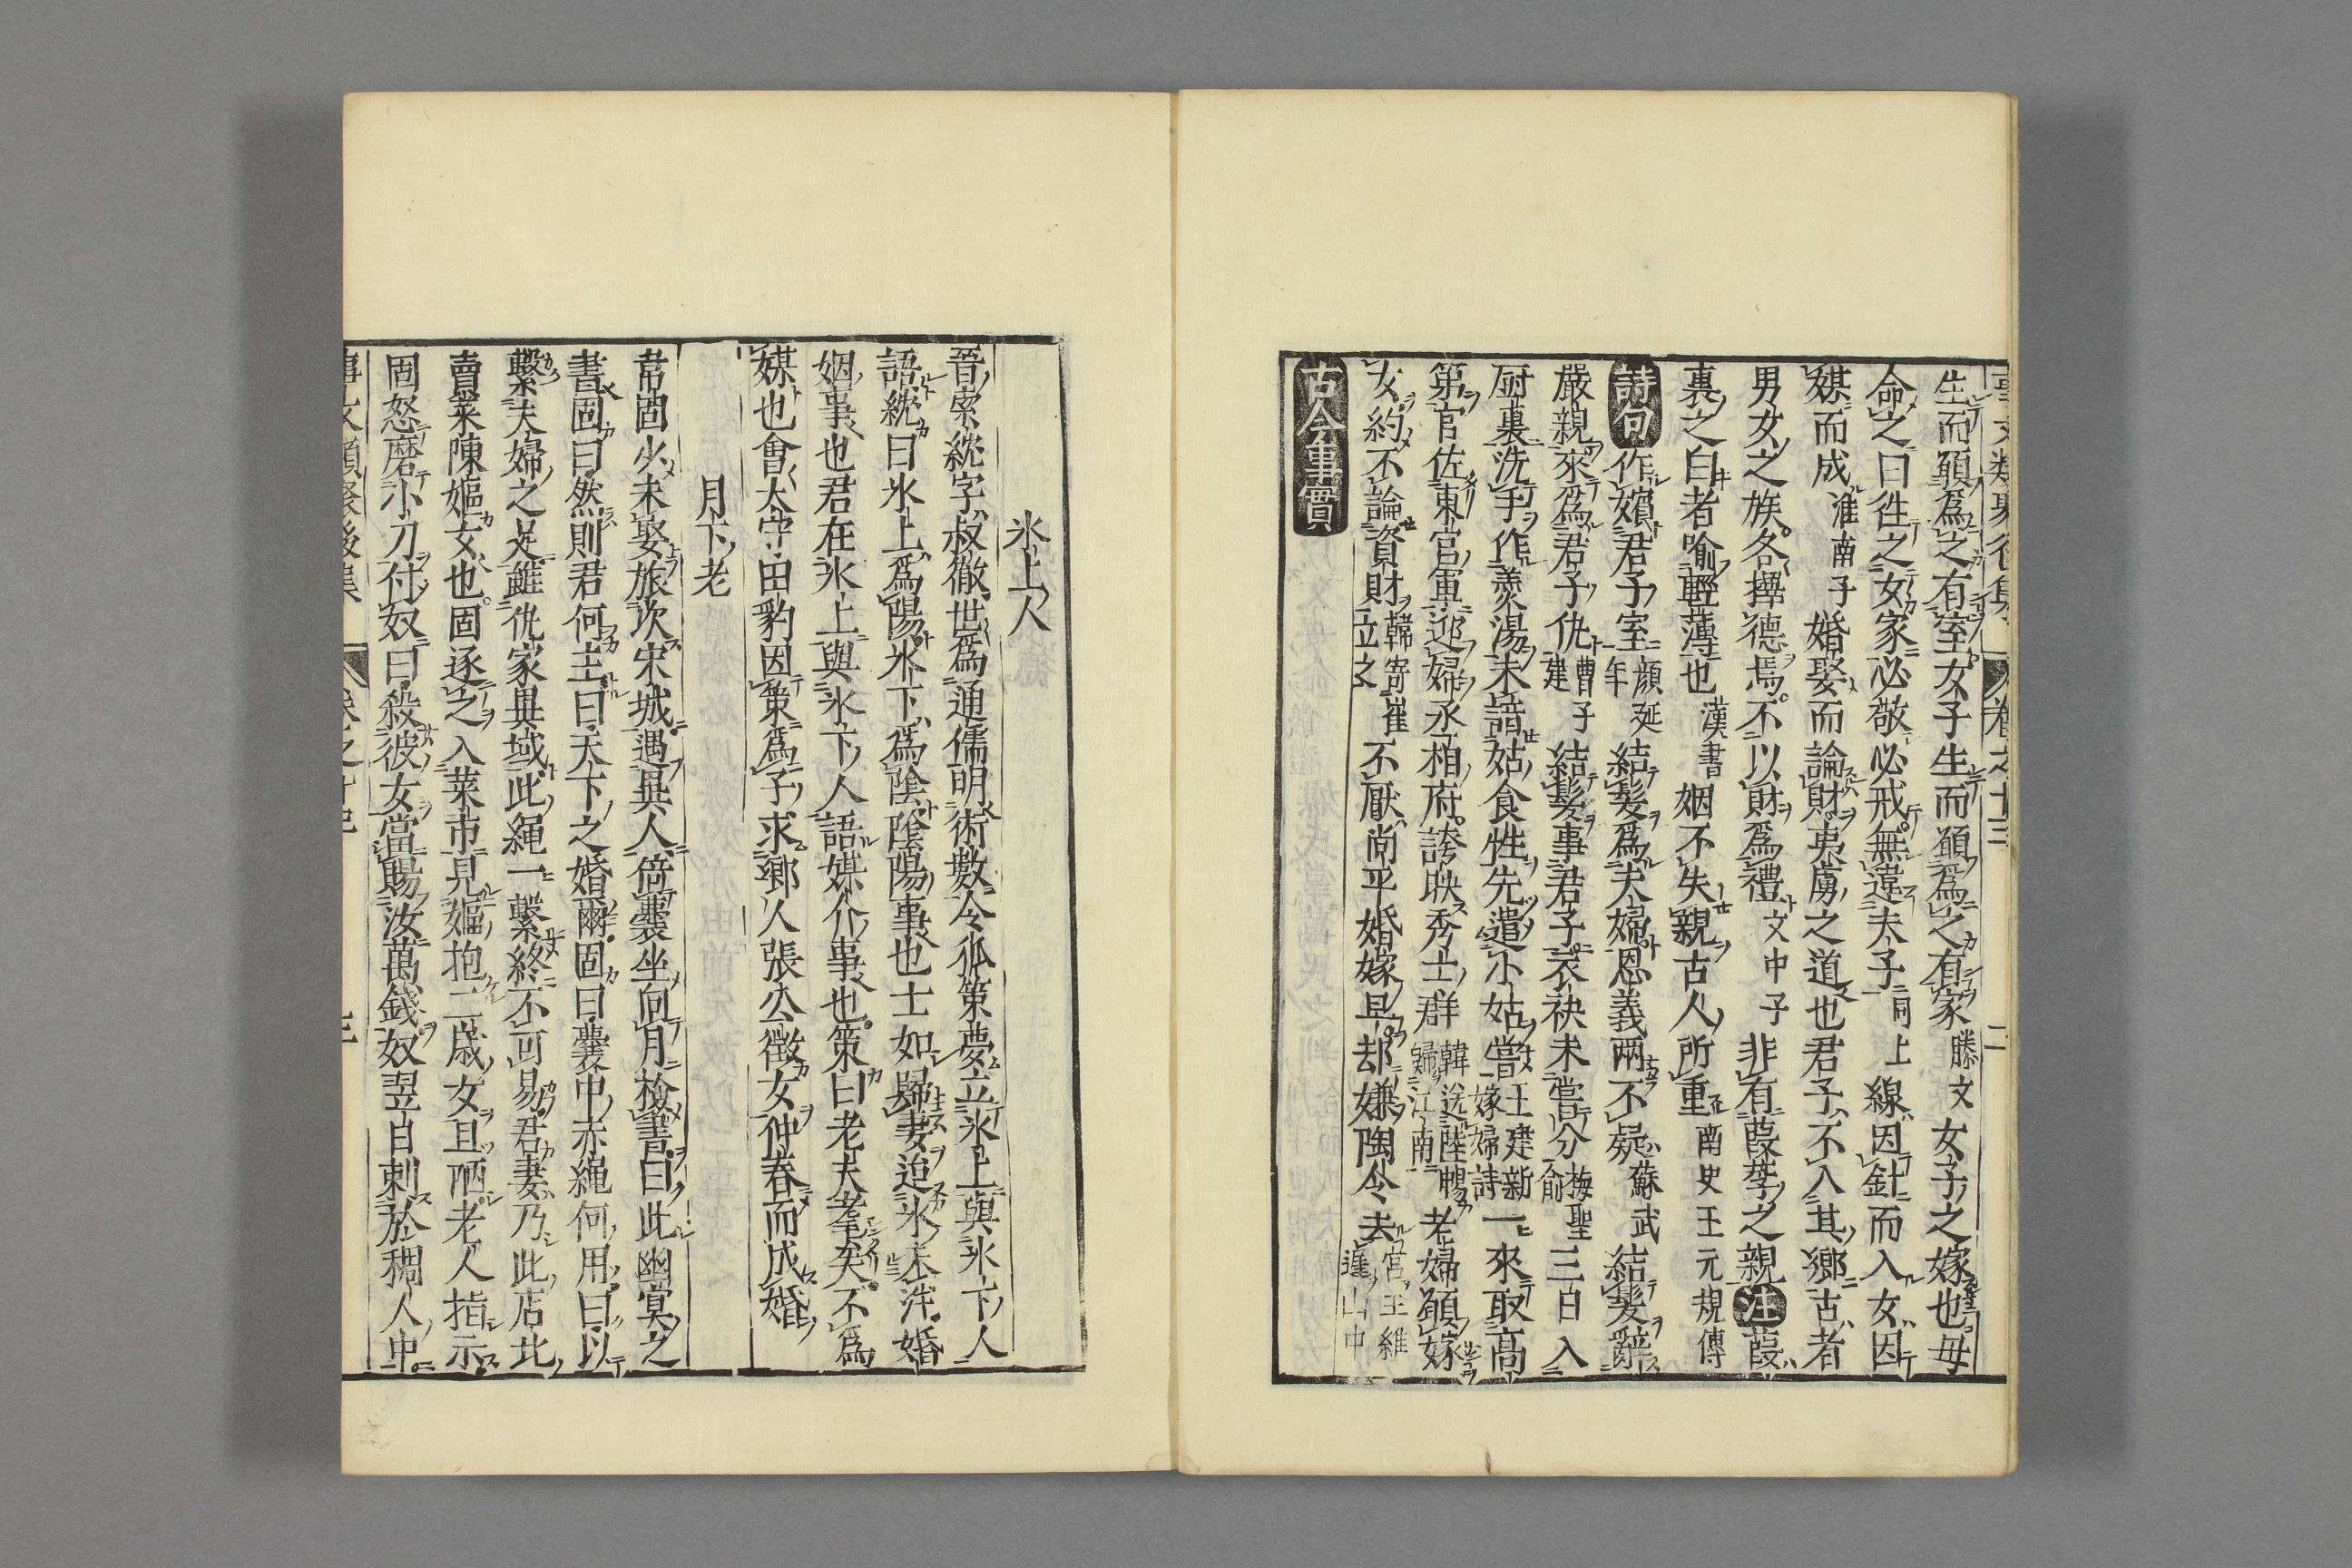 事文類聚後集 卷之十三 二
生而願爲之有室女子生而願爲之有家滕文女子之嫁也母
命之曰徃之女家必敬必戒無違夫子同上線因針而入女因
媒而成淮南子婚娶而論財夷虜之道也君子不入其鄉古者
男女之族各擇德焉不以財爲禮文中子非有葭莩之親注葭
裏之白者喻輕薄也漢書姻不失親古人所重南史王元規傳
詩句作嬪君子室顔延年結髮爲夫婦恩義兩不疑蘇武結髮辭
嚴親來爲君子仇曹子建結髮事君子衣袂未嘗分梅聖俞三日入
厨裏洗手作羹湯未諳姑食性先遣小姑嘗王建新嫁婦詩一來取高
第官佐東宮軍迎婦丞相府誇映秀士群韓送陸暢歸江南老婦願嫁
女約不論資財韓寄崔立之不厭尚平婚嫁早却嫌陶令去官王維
古今事實
氷上人
晉索紞字叔徹世爲通儒明術數令狐策夢立氷上與氷下人
語紞曰氷上爲陽氷下爲陰陰陽事也士如歸妻迨氷未泮婚
姻事也君在氷上與氷下人語媒介事也策曰老夫耄矣不爲
媒也會太守田豹因策爲子求鄉人張公徵女仲春而成婚
月下老
韋固少未娶旅次宋城遇異人倚囊坐向月檢書曰此幽冥之
書固曰然則君何主曰天下之婚爾固曰囊中赤繩何用曰以
繫夫婦之足雖仇家異域此繩一繫終不可易君妻乃此店北
賣菜陳嫗女也固逐之入菜市見嫗抱二歲女且陋老人指示
固怒磨小刀付奴曰殺彼女當賜汝萬錢奴翌日刺於稠人中
事文類聚後集 卷之十三 三